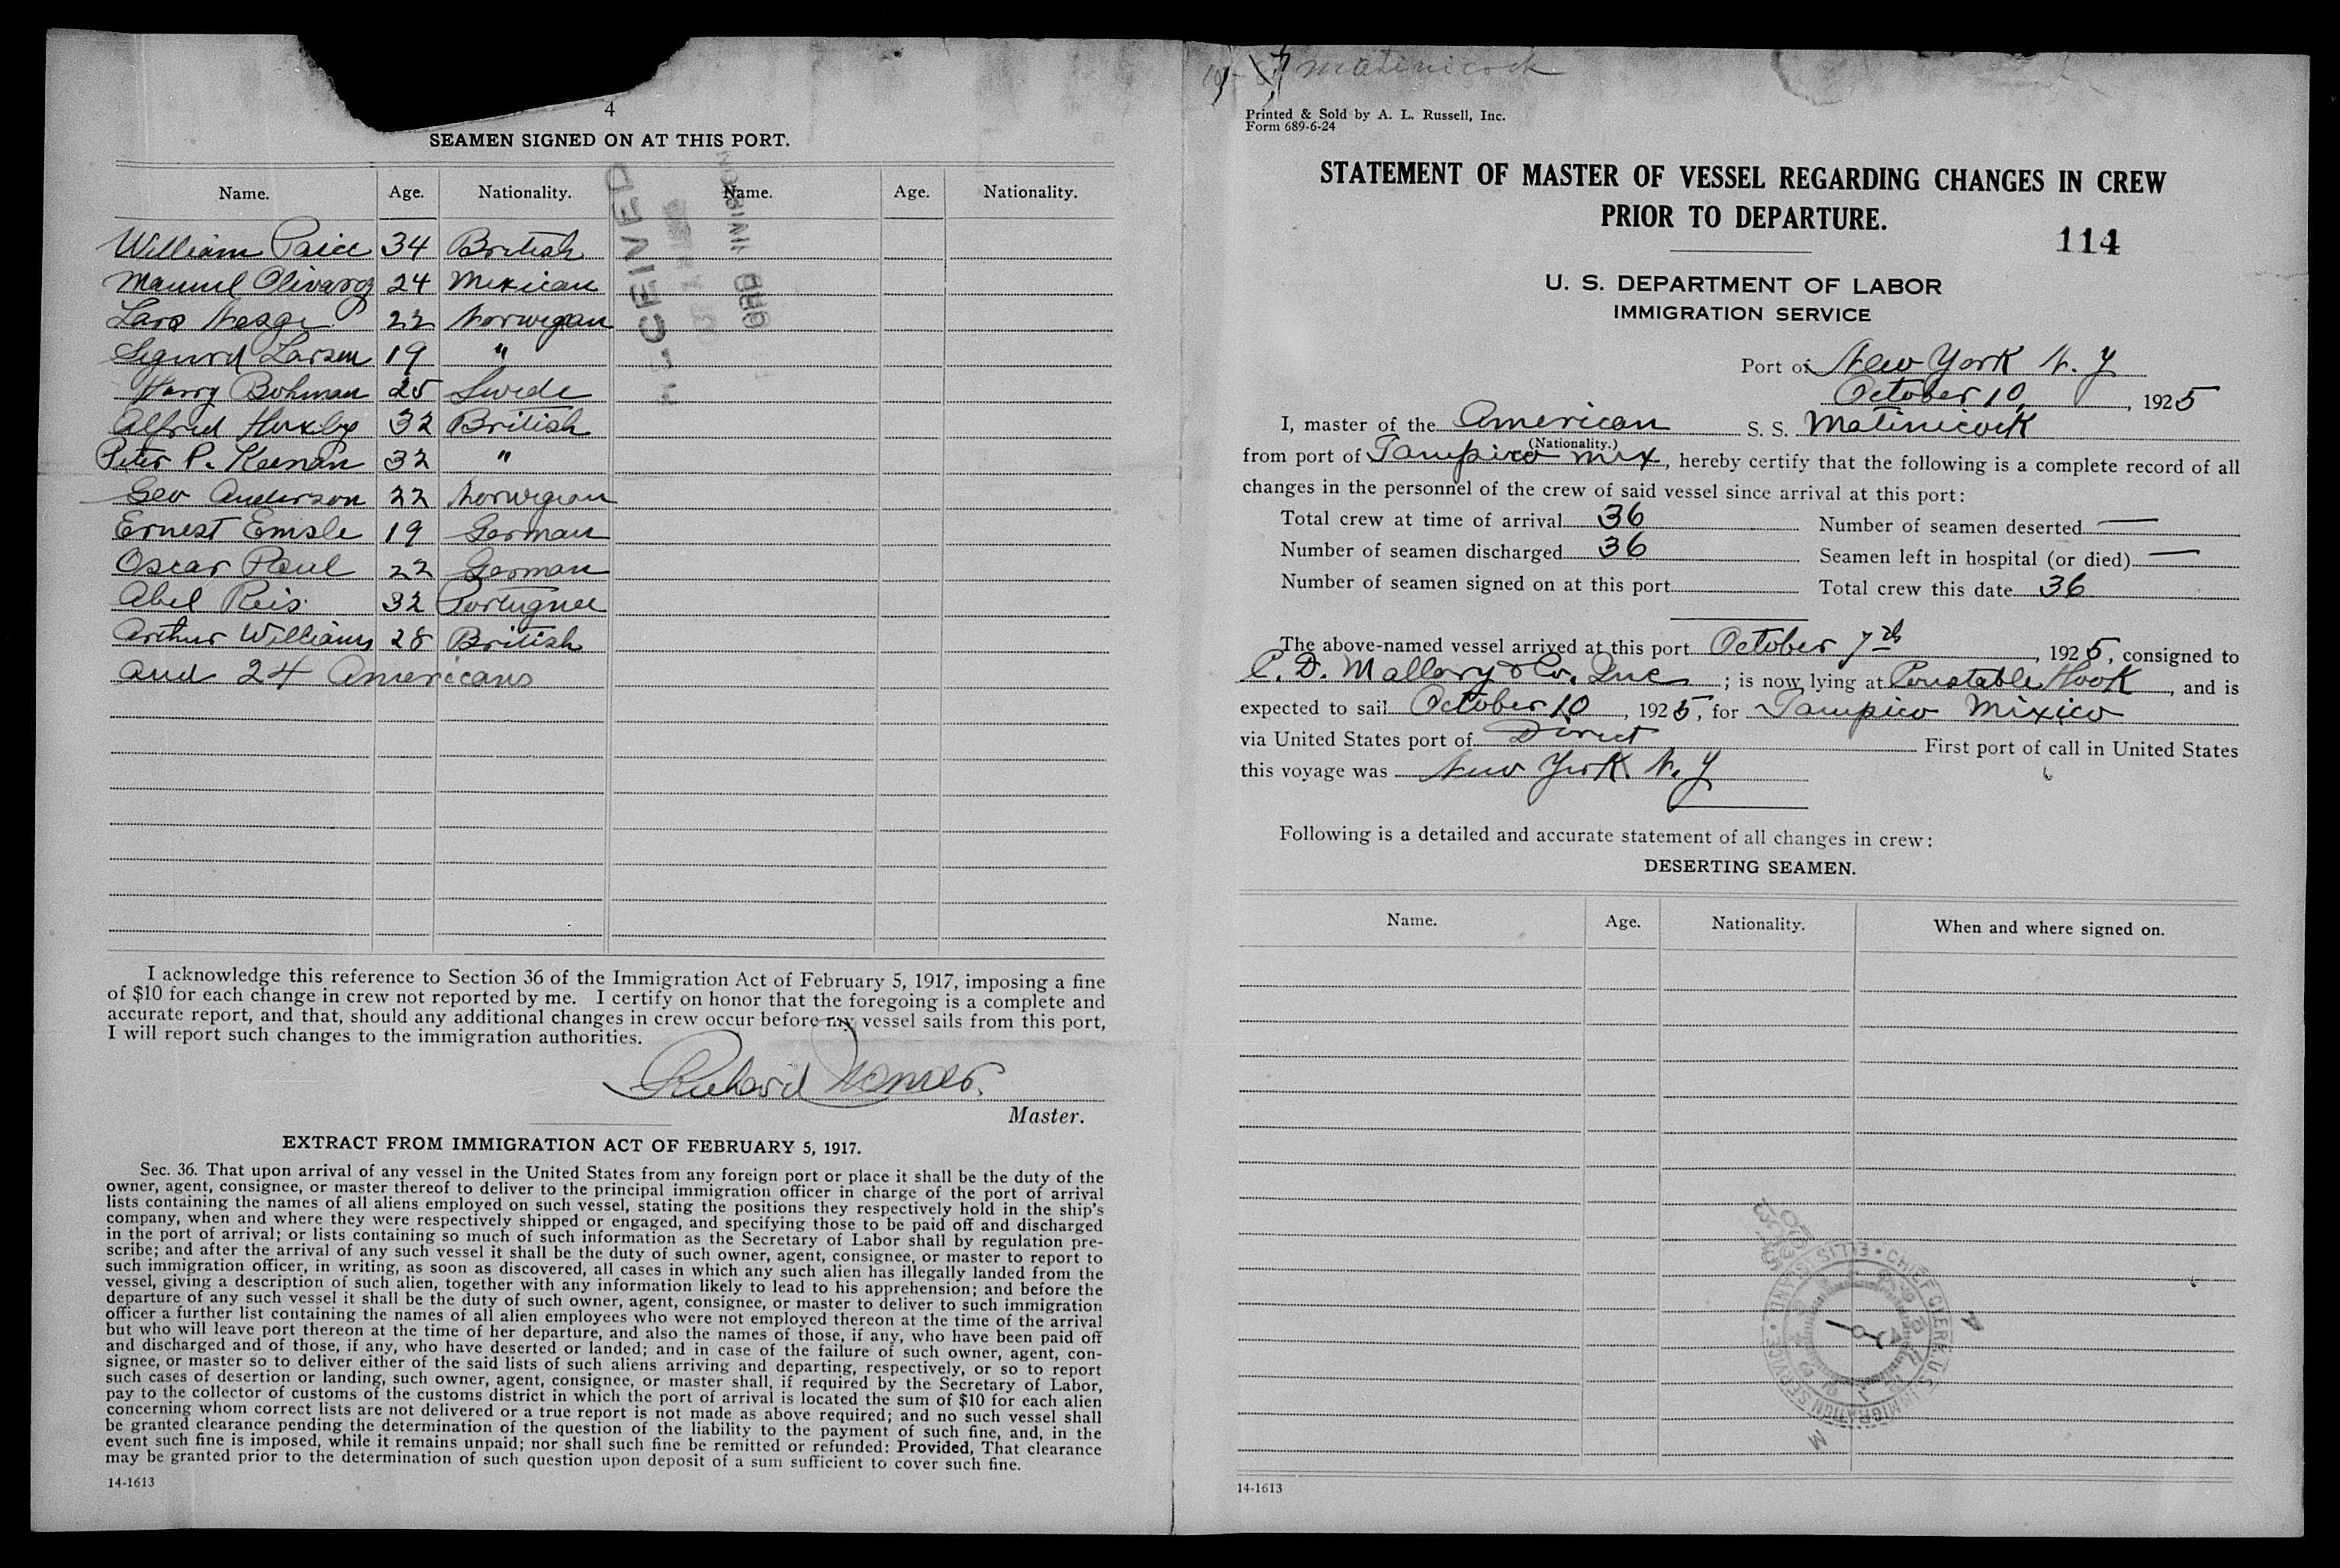 4
SEAMEN SIGNED ON AT THIS PORT.
Name. Age. Nationality. Name. Age. Nationality.
William Paice 34 British
Manuel Olivarez 24 Mexican
Lars 22 Norwegan
Sigurd Larsen 19 "
Harry Bohman 25 Swede
Alfred 32 British
Peter P. Keenan 32 "
Geo Anderson 22 Norwegian
Ernest Emsle 19 German
Oscar Paul 22 German
Abel Reis 32 Portuguee
Arthur Williams 28 British
and 24 Americans
I acknowledge this reference to Section 36 of the Immigration Act of February 5, 1917, imposing a fine
of $10 for each change in crew not reported by me. I certify on honor that the foregoing is a complete and
accurate report, and that, should any additional changes in crew occur before my vessel sails from this port,
I will report such changes to the immigration authorities.
Richard
Master.
EXTRACT FROM IMMIGRATION ACT OF FEBRUARY 5, 1917.
Sec. 36. That upon arrival of any vessel in the United States from any foreign port or place it shall be the duty of the
owner, agent, consignee, or master thereof to deliver to the principal immigration officer in charge of the port of arrival
lists containing the names of all aliens employed on such vessel, stating the positions they respectively hold in the ship's
company, when and where they were respectively shipped or engaged, and specifying those to be paid off and discharged
in the port of arrival; or lists containing so much of such information as the Secretary of Labor shall by regulation pre-
scribe; and after the arrival of any such vessel it shall be the duty of such owner, agent, consignee, or master to report to
such immigration officer, in writing, as soon as discovered, all cases in which any such alien has illegally landed from the
vessel, giving a description of such alien, together with any information likely to lead to his apprehension; and before the
departure of any such vessel it shall be the duty of such owner, agent, consignee, or master to deliver to such immigration
officer a further list containing the names of all alien employees who were not employed thereon at the time of the arrival
but who will leave port thereon at the time of her departure, and also the names of those, if any, who have been paid off
and discharged and of those, if any, who have deserted or landed; and in case of the failure of such owner, agent, con-
signee, or master so to deliver either of the said lists of such aliens arriving and departing, respectively, or so to report
such cases of desertion or landing, such owner, agent, consignee, or master shall, if required by the Secretary of Labor,
pay to the collector of customs of the customs district in which the port of arrival is located the sum of $10 for each alien
concerning whom correct lists are not delivered or a true report is not made as above required; and no such vessel shall
be granted clearance pending the determination of the question of the liability to the payment of such fine, and, in the
event such fine is imposed, while it remains unpaid; nor shall such fine be remitted or refunded: Provided, That clearance
may be granted prior to the determination of such question upon deposit of a sum sufficient to cover such fine.
14-1613
matinicock
Printed & Sold by A. L. Russell, Inc.
Form 689-6-24
STATEMENT OF MASTER OF VESSEL REGARDING CHANGES IN CREW
PRIOR TO DEPARTURE.
114
U. S. DEPARTMENT OF LABOR
IMMIGRATION SERVICE
Port of New York N. Y
October 10, 1925
I, master of the American S. S. Matinicock
(Nationality.)
from port of Tampico Mex, hereby certify that the following is a complete record of all
changes in the personnel of the crew of said vessel since arrival at this port:
Total crew at time of arrival 36 Number of seamen deserted —
Number of seamen discharged 36 Seamen left in hospital (or died) —
Number of seamen signed on at this port Total crew this date 36
The above-named vessel arrived at this port October 7th, 1925, consigned to
C. D. Mallory & Co. Inc; is now lying at Constable Hook, and is
expected to sail October 10, 1925, for Tampico Mixico
via United States port of Direct First port of call in United States
this voyage was New York N. Y
Following is a detailed and accurate statement of all changes in crew:
DESERTING SEAMEN.
Name. Age. Nationality. When and where signed on.
CHIEF CLERK, U.S. IMMIGRATION SERVICE • ELLIS ISLAND
14-1613